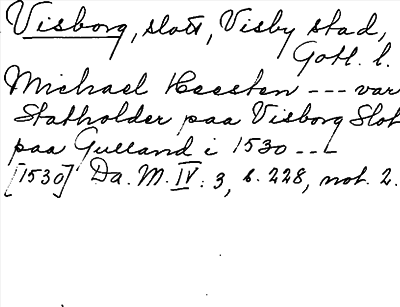 Visborg, slott, Visby stad,
Gotl. l.
Michael Heesten --- var
Statholder paa Visborg Slot
paa Gulland i 1530 ---
[1530] Da. M. IV: 3, s. 228, not. 2.